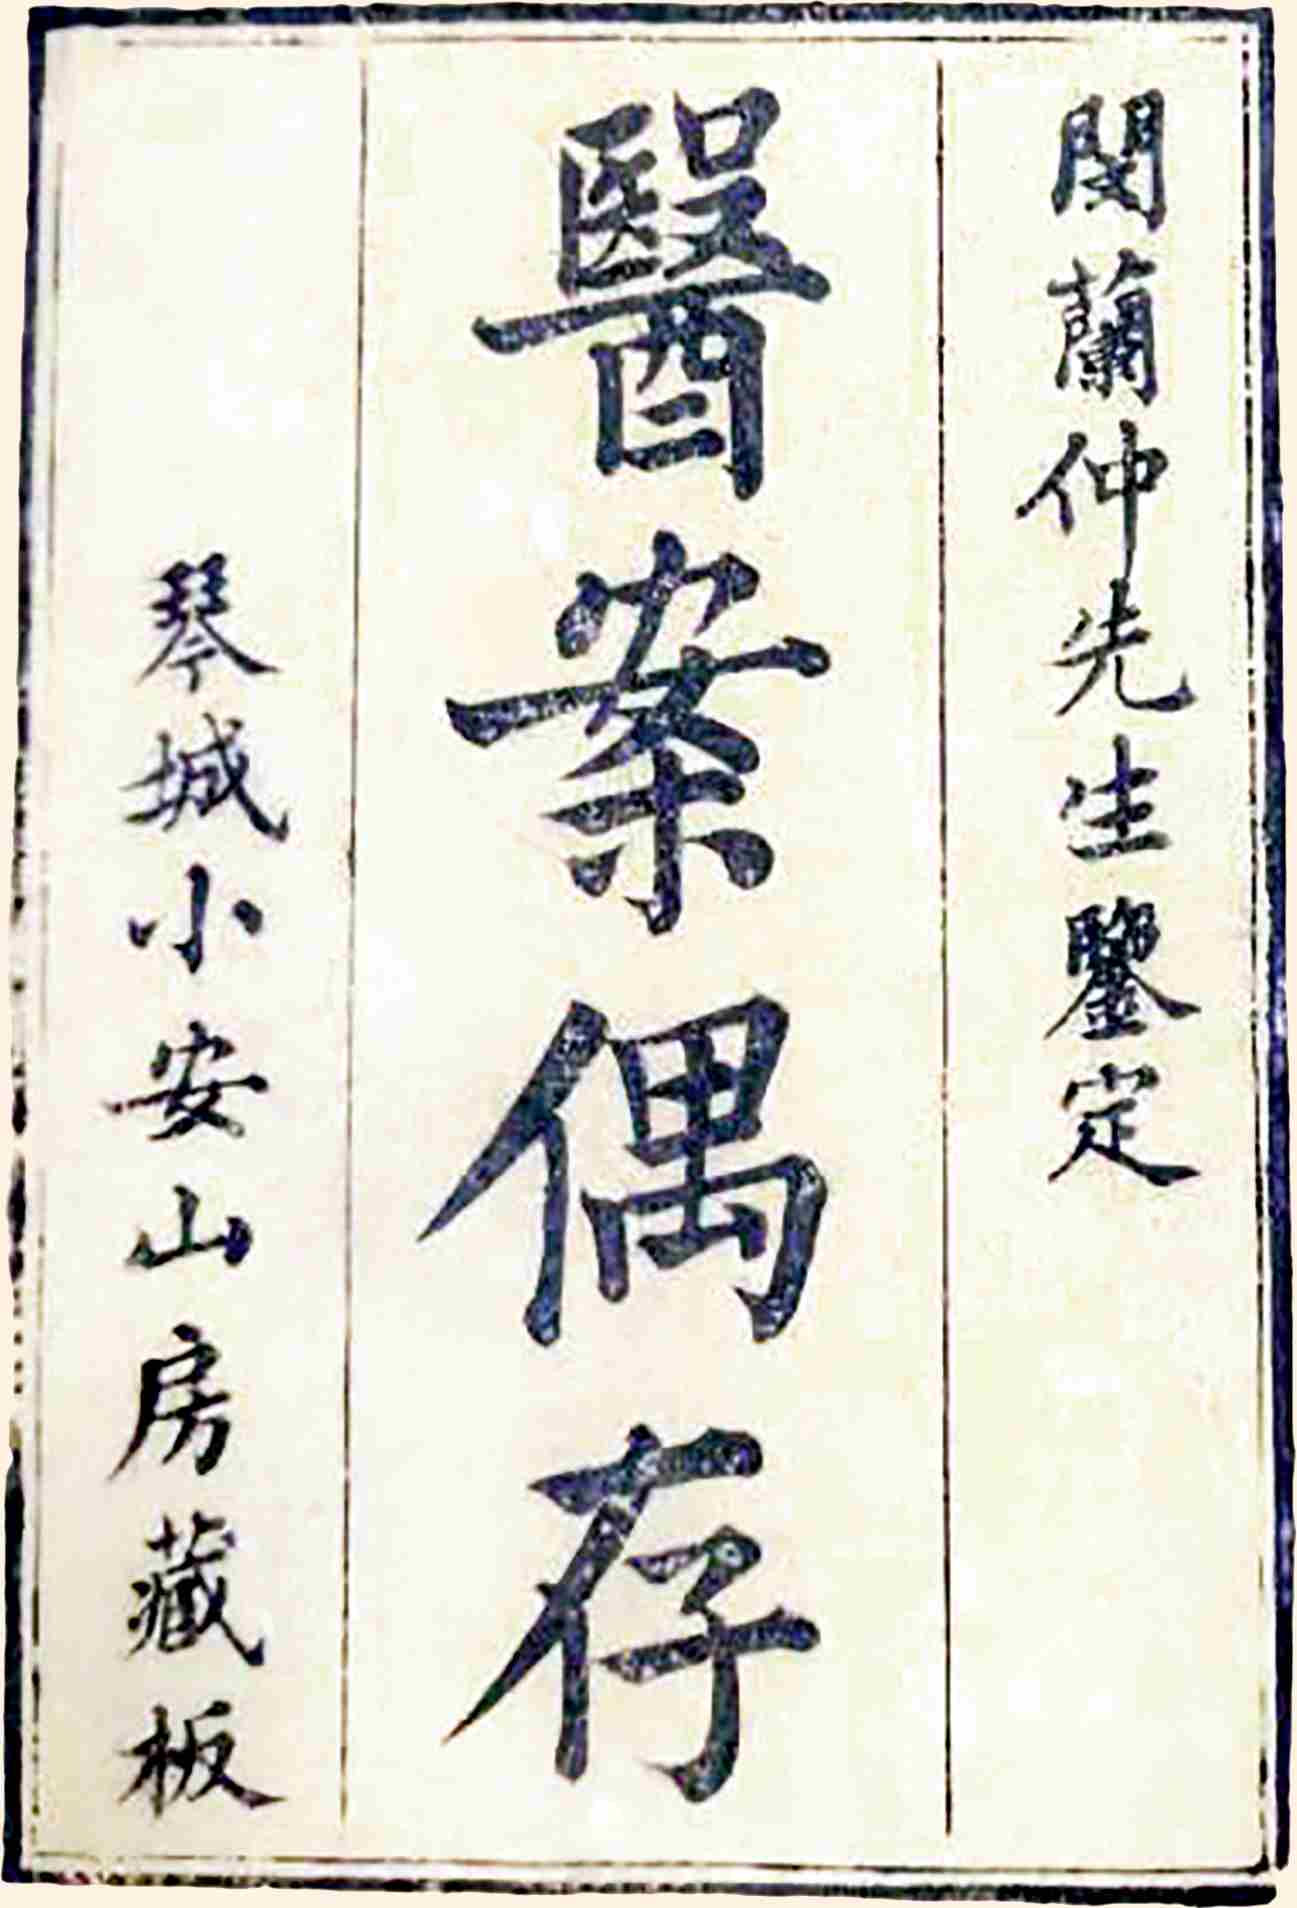 閔蘭仲先生鑒定
醫案偶存
琴城小安山房藏板